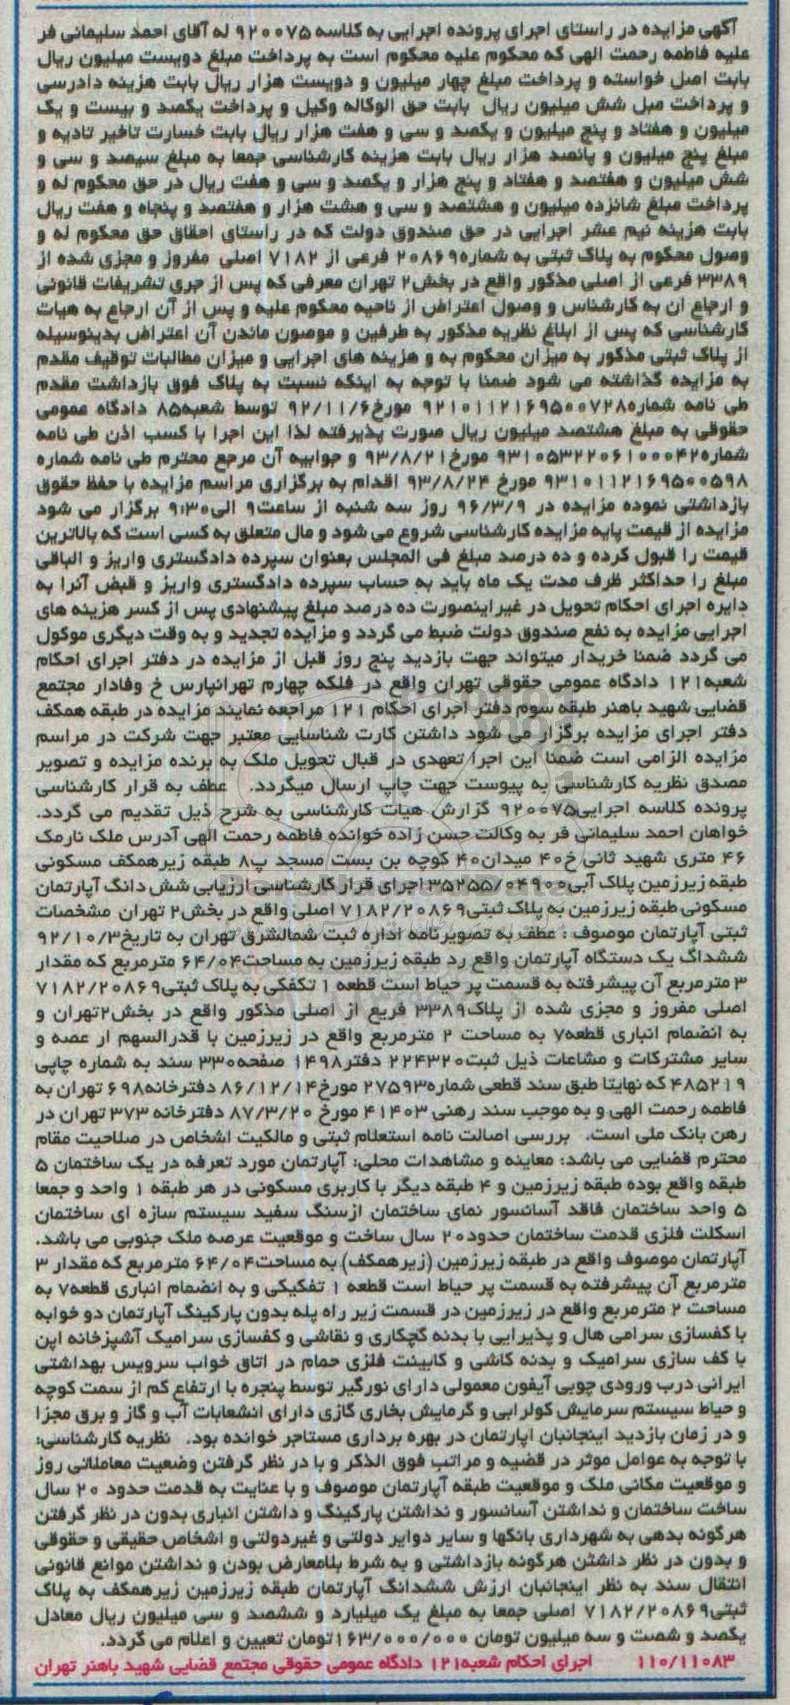 آگهی مزایده در راستای اجرای پرونده اجرایی به کلاسه ۹۲۰۰۷۵ له آقای احمد سلیمانی فر
علیه فاطمه رحمت الهی که محکوم علیه محکوم است به پرداخت مبلغ دویست میلیون ریال
بابت اصل خواسته و پرداخت مبلغ چهار میلیون و دویست هزار ریال بابت هزینه دادرسی
و پرداخت مبل شش میلیون ریال بابت حق الوکاله وکیل و پرداخت یکصد و بیست و یک
میلیون و هفتاد و پنج میلیون و یکصد و سی و هفت هزار ریال بابت خسارت تاخیر تادیه و
مبلغ پنج میلیون و پانصد هزار ریال بابت هزینه کارشناسی جمعا به مبلغ سیصد و سی و
شش میلیون و هفتصد و هفتاد و پنج هزار و یکصد و سی و هفت ریال در حق محکوم له و
پرداخت مبلغ شانزده میلیون و هشتصد و سی و هشت هزار و هفتصد و پنجاه و هفت ریال
بابت هزینه نیم عشر اجرایی در حق صندوق دولت که در راستای احقاق حق محکوم له و
وصول محکوم به پلاک ثبتی به شماره۲۰۸۶۹ فرعی از ۷۱۸۲ اصلی مفروز و مجزی شده از
۳۳۸۹ فرعی از اصلی مذکور واقع در بخش۲ تهران معرفی که پس از جری تشریفات قانونی
و ارجاع ان به کارشناس و وصول اعتراض از ناحیه محکوم علیه و پس از آن ارجاع به هیات
کارشناسی که پس از ابلاغ نظریه مذکور به طرفین و موصون ماندن آن اعتراض بدینوسیله
از پلاک ثبتی مذکور به میزان محکوم به و هزینه های اجرایی و میزان مطالبات توقیف مقدم
به مزایده گذاشته می شود ضمنا با توجه به اینکه نسبت به پلاک فوق بازداشت مقدم
طی نامه شماره۹۲۱۰۱۱۲۱۶۹۵۰۰۷۲۸ مورخ۹۲/۱۱/۶ توسط شعبه۸۵ دادگاه عمومی
حقوقی به مبلغ هشتصد میلیون ریال صورت پذیرفته لذا این اجرا با کسب اذن طی نامه
شماره۹۳۱۰۵۳۲۲۰۶۱۰۰۰۴۲ مورخ۹۳/۸/۲۱ و جوابیه آن مرجع محترم طی نامه شماره
۹۳۱۰۱۱۲۱۶۹۵۰۰۵۹۸ مورخ ۹۳/۸/۲۴ اقدام به برگزاری مراسم مزایده با حفظ حقوق
بازداشتی نموده مزایده در ۹۶/۳/۹ روز سه شنبه از ساعت۹ الی۹:۳۰ برگزار می شود
مزایده از قیمت پایه مزایده کارشناسی شروع می شود و مال متعلق به کسی است که بالاترین
قیمت را قبول کرده و ده درصد مبلغ فی المجلس بعنوان سپرده دادگستری واریز و الباقی
مبلغ را حداکثر ظرف مدت یک ماه باید به حساب سپرده دادگستری واریز و قبض آنرا به
دایره اجرای احکام تحویل در غیراینصورت ده درصد مبلغ پیشنهادی پس از کسر هزینه های
اجرایی مزایده به نفع صندوق دولت ضبط می گردد و مزایده تجدید و به وقت دیگری موکول
می گردد ضمنا خریدار میتواند جهت بازدید پنج روز قبل از مزایده در دفتر اجرای احکام
شعبه۱۲۱ دادگاه عمومی حقوقی تهران واقع در فلکه چهارم تهرانپارس خ وفادار مجتمع
قضایی شهید باهنر طبقه سوم دفتر اجرای احکام ۱۲۱ مراجعه نمایند مزایده در طبقه همکف
دفتر اجرای مزایده برگزار می شود داشتن کارت شناسایی معتبر جهت شرکت در مراسم
مزایده الزامی است ضمنا این اجرا تعهدی در قبال تحویل ملک به برنده مزایده و تصویر
مصدق نظریه کارشناسی به پیوست جهت چاپ ارسال میگردد. عطف به قرار کارشناسی
پرونده کلاسه اجرایی۹۲۰۰۷۵ گزارش هیات کارشناسی به شرح ذیل تقدیم می گردد.
خواهان احمد سلیمانی فر به وکالت حسن زاده خوانده فاطمه رحمت الهی آدرس ملک نارمک
۴۶ متری شهید ثانی خ۴۰ میدان۴۰ کوچه بن بست مسجد پ۸ طبقه زیرهمکف مسکونی
طبقه زیرزمین پلاک آبی۳۵۲۵۵/۰۴۹۰۰ اجرای قرار کارشناسی ارزیابی شش دانگ آپارتمان
مسکونی طبقه زیرزمین به پلاک ثبتی۷۱۸۲/۲۰۸۶۹ اصلی واقع در بخش۲ تهران مشخصات
ثبتی آپارتمان موصوف : عطف به تصویرنامه اداره ثبت شمالشرق تهران به تاریخ۹۲/۱۰/۳
ششداگ یک دستگاه آپارتمان واقع رد طبقه زیرزمین به مساحت۶۴/۰۴ مترمربع که مقدار
۳ مترمربع آن پیشرفته به قسمت پر حیاط است قطعه ۱ تکفکی به پلاک ثبتی۷۱۸۲/۲۰۸۶۹
اصلی مفروز و مجزی شده از پلاک۳۳۸۹ فریع از اصلی مذکور واقع در بخش۲تهران و
به انضمام انباری قطعه۷ به مساحت ۲ مترمربع واقع در زیرزمین با قدرالسهم ار عصه و
سایر مشترکات و مشاعات ذیل ثبت۲۲۴۳۲۰ دفتر۱۴۹۸ صفحه۳۳۰ سند به شماره چاپی
۴۸۵۲۱۹ که نهایتا طبق سند قطعی شماره۲۷۵۹۳ مورخ۸۶/۱۲/۱۴ دفترخانه۶۹۸ تهران به
فاطمه رحمت الهی و به موجب سند رهنی ۴۱۴۰۳ مورخ ۸۷/۳/۲۰ دفترخانه ۳۷۳ تهران در
رهن بانک ملی است. بررسی اصالت نامه استعلام ثبتی و مالکیت اشخاص در صلاحیت مقام
محترم قضایی می باشد: معاینه و مشاهدات محلی: آپارتمان مورد تعرفه در یک ساختمان ۵
طبقه واقع بوده طبقه زیرزمین و ۴ طبقه دیگر با کاربری مسکونی در هر طبقه ۱ واحد و جمعا
۵ واحد ساختمان فاقد آسانسور نمای ساختمان ازسنگ سفید سیستم سازه ای ساختمان
اسکلت فلزی قدمت ساختمان حدود۲۰ سال ساخت و موقعیت عرصه ملک جنوبی می باشد.
آپارتمان موصوف واقع در طبقه زیرزمین (زیرهمکف) به مساحت۶۴/۰۴ مترمربع که مقدار ۳
مترمربع آن پیشرفته به قسمت پر حیاط است قطعه ۱ تفکیکی و به انضمام انباری قطعه۷ به
مساحت ۲ مترمربع واقع در زیرزمین در قسمت زیر راه پله بدون پارکینگ آپارتمان دو خوابه
با کفسازی سرامی هال و پذیرایی با بدنه گچکاری و نقاشی و کفسازی سرامیک آشپزخانه اپن
با کف سازی سرامیک و بدنه کاشی و کابینت فلزی حمام در اتاق خواب سرویس بهداشتی
ایرانی درب ورودی چوبی آیفون معمولی دارای نورگیر توسط پنجره با ارتفاع کم از سمت کوچه
و حیاط سیستم سرمایش کولرابی و گرمایش بخاری گازی دارای انشعابات آب و گاز و برق مجزا
و در زمان بازدید اینجانبان اپارتمان در بهره برداری مستاجر خوانده بود. نظریه کارشناسی:
با توجه به عوامل موثر در قضیه و مراتب فوق الذکر و با در نظر گرفتن وضعیت معاملاتی روز
و موقعیت مکانی ملک و موقعیت طبقه آپارتمان موصوف و با عنایت به قدمت حدود ۲۰ سال
ساخت ساختمان و نداشتن آسانسور و نداشتن پارکینگ و داشتن انباری بدون در نظر گرفتن
هرگونه بدهی به شهرداری بانکها و سایر دوایر دولتی و غیردولتی و اشخاص حقیقی و حقوقی
و بدون در نظر داشتن هرگونه بازداشتی و به شرط بلامعارض بودن و نداشتن موانع قانونی
انتقال سند به نظر اینجانبان ارزش ششدانگ آپارتمان طبقه زیرزمین زیرهمکف به پلاک
ثبتی۷۱۸۲/۲۰۸۶۹ اصلی جمعا به مبلغ یک میلیارد و ششصد و سی میلیون ریال معادل
یکصد و شصت و سه میلیون تومان ۱۶۳/۰۰۰/۰۰۰تومان تعیین و اعلام می گردد.
۱۱۰/۱۱۰۸۳ اجرای احکام شعبه۱۲۱ دادگاه عمومی حقوقی مجتمع قضایی شهید باهنر تهران